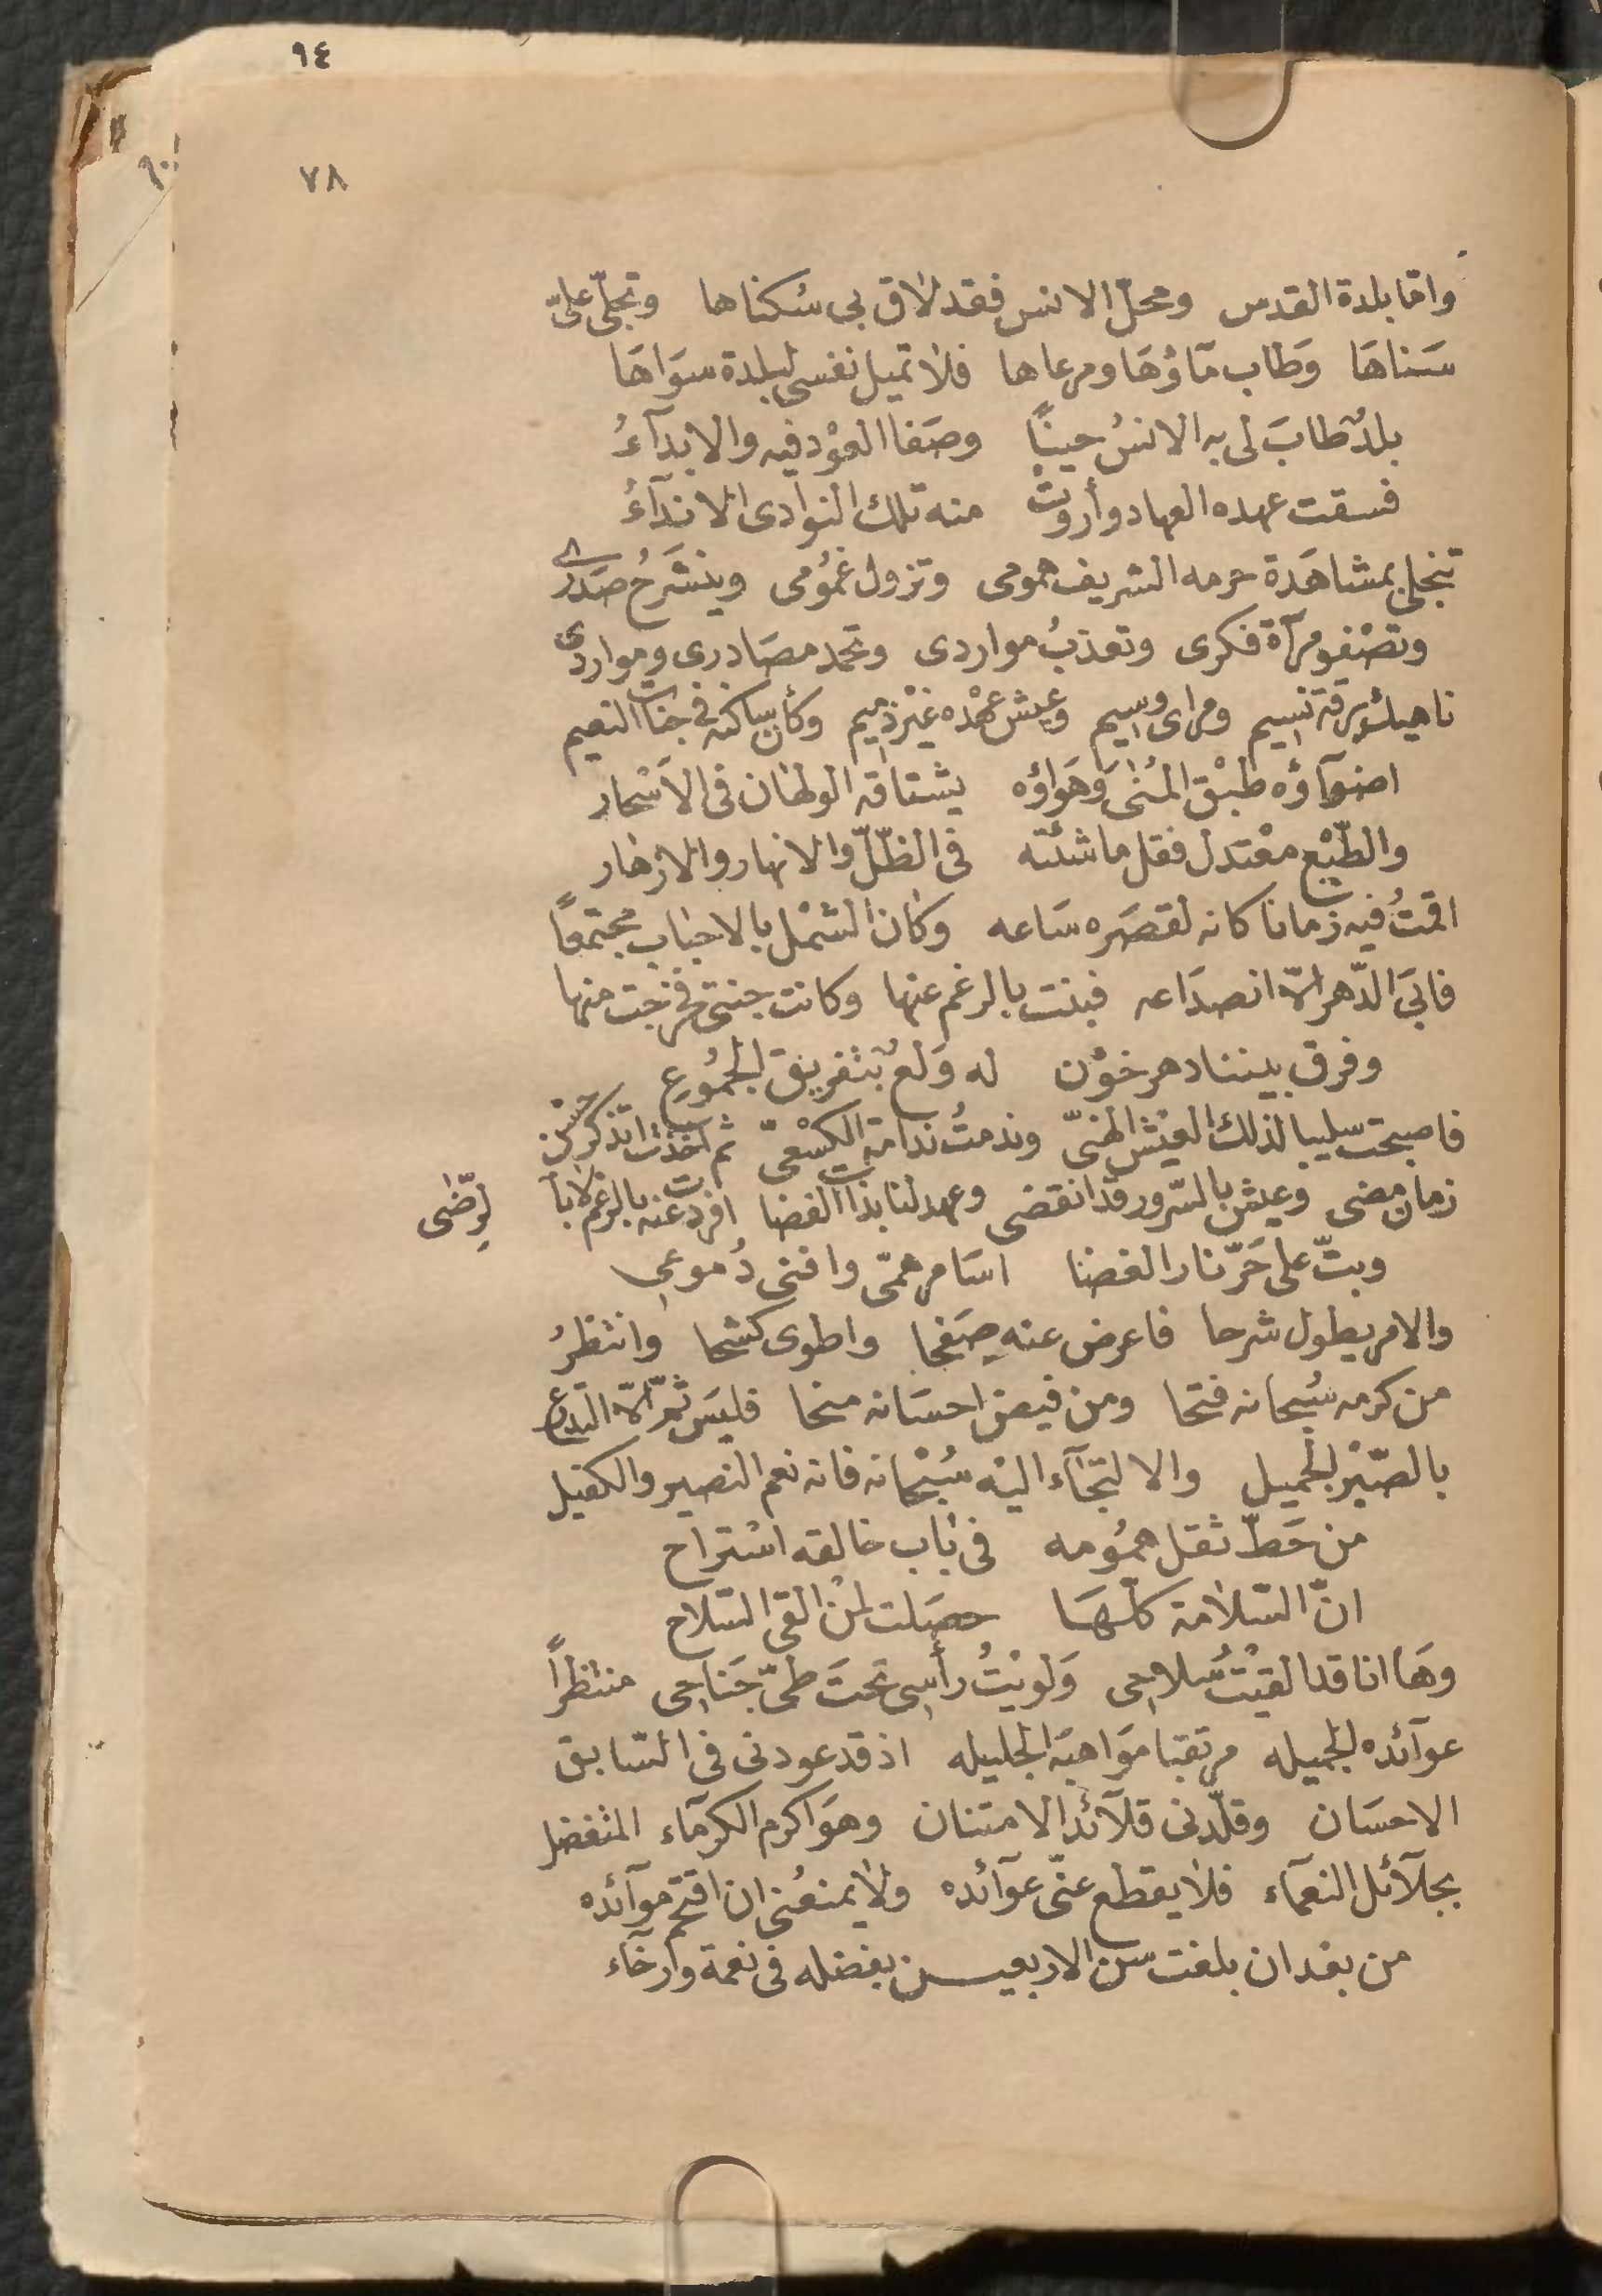 ٩٤
٧٨
واما بلدة القدس ومحلّ الانس فقد لاق بى سكناها وتجلّى علىّ
سَناهَا وَطاب مَاؤهَا ومرعاها فلا تميل نفسى لبلدة سوَاهَا
بلدٌ طابَ لى به الانسُ حينًا وصَفا العوْد فيه والابدآءُ
فسقت عهده العهاد وأروتْ منه تلك النوادى الاندآءُ
تنجلى بمشاهَدة حرمه الشريف همومى وتزول غمُومى وينشَرحُ صَدرى
وتصْفو مرآة فكرى وتعذبُ مواردى وتحمد مصَادرى ومواردى
ناهيك برقة نسيم ومراى وسيم وعيش عهْده غيْر ذميم وكأن ساكنه فى جنات النعيم
اضوآؤه طبْق المُنى وَهَواؤه يشتاقه الولهان فى الاَسْحار
والطّبْع معْتدل فقل ما شئته فى الظّلّ والانهار والازهار
اقمتُ فيه زمانا كانه لقصَره سَاعه وكان الشمْل بالاحباب مجتمعًا
فابَى الدّهر الاّ انصدَاعه فبنت بالرغم عنها وكانت جنتى فخرجت منها
وفرق بيننا دهر خؤن له وَلعٌ بتفريق الجمُوع
فاصبحت سليبا لذلك العيْش الهنىّ وندمتُ ندامة الكسْعىّ ثم اخذت اتذكر حسْن
زمان مضى وعيش بالسّرور قد انقضى وعهد لنا بذات الغضا افردت عنه بالرغم لا بالرّضى
وبتّ على حَرّ نار الغضا اسَامر همّى وافنى دُموعى
والامر يطول شرحا فاعرض عنه صَفحا واطوى كشحا وانتظرُ
من كرمه سُبحانه فتحا ومن فيض احسَانه منحا فليَس ثمّ الاّ التدرع
بالصّبْر الجميل والالتجآء اليْه سُبْحانه فانه نعم النصير والكفيل
من حَطّ ثقل همُومه فى بَاب خالقه اسْتراح
انّ السّلامة كلّهَا حصَلت لمنْ القى السّلاح
وهَا انا قد القيْتُ سَلاحى وَلويْتُ رأسى تحتَ طىّ جَناحى منتظراً
عوآئده الجميله مرتقبا موَاهبَه الجليله اذ قد عودنى فى السّابق
الاحسَان وقلّدنى قلآئد الامتنان وهوَ اكرم الكرمآء المتفضل
بجلآئل النعمآء فلا يقطع عنّى عوآئده ولا يمنعُنى ان اقتحم موآئده
من بعْد ان بلغت سن الاربعيــن بفضله فى نعمة وارخآء